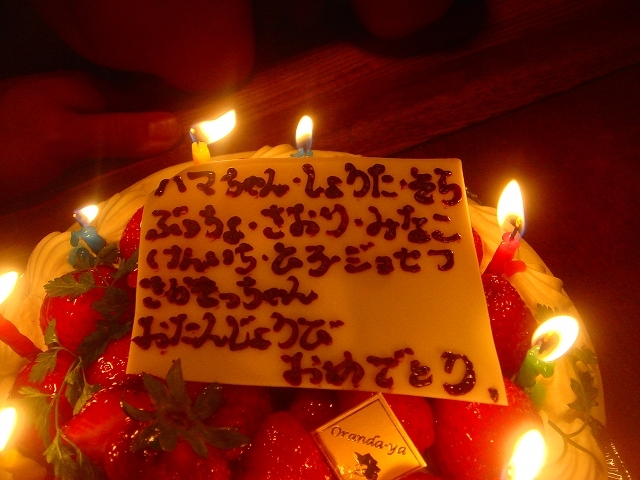 ハマちゃん・しょうた・そら
ぶっちょ・さおり・みなこ
けんいち・とみ子・ジョセフ
さかきっちゃん
おたんじょうび
おめでとう。
Oranda-ya